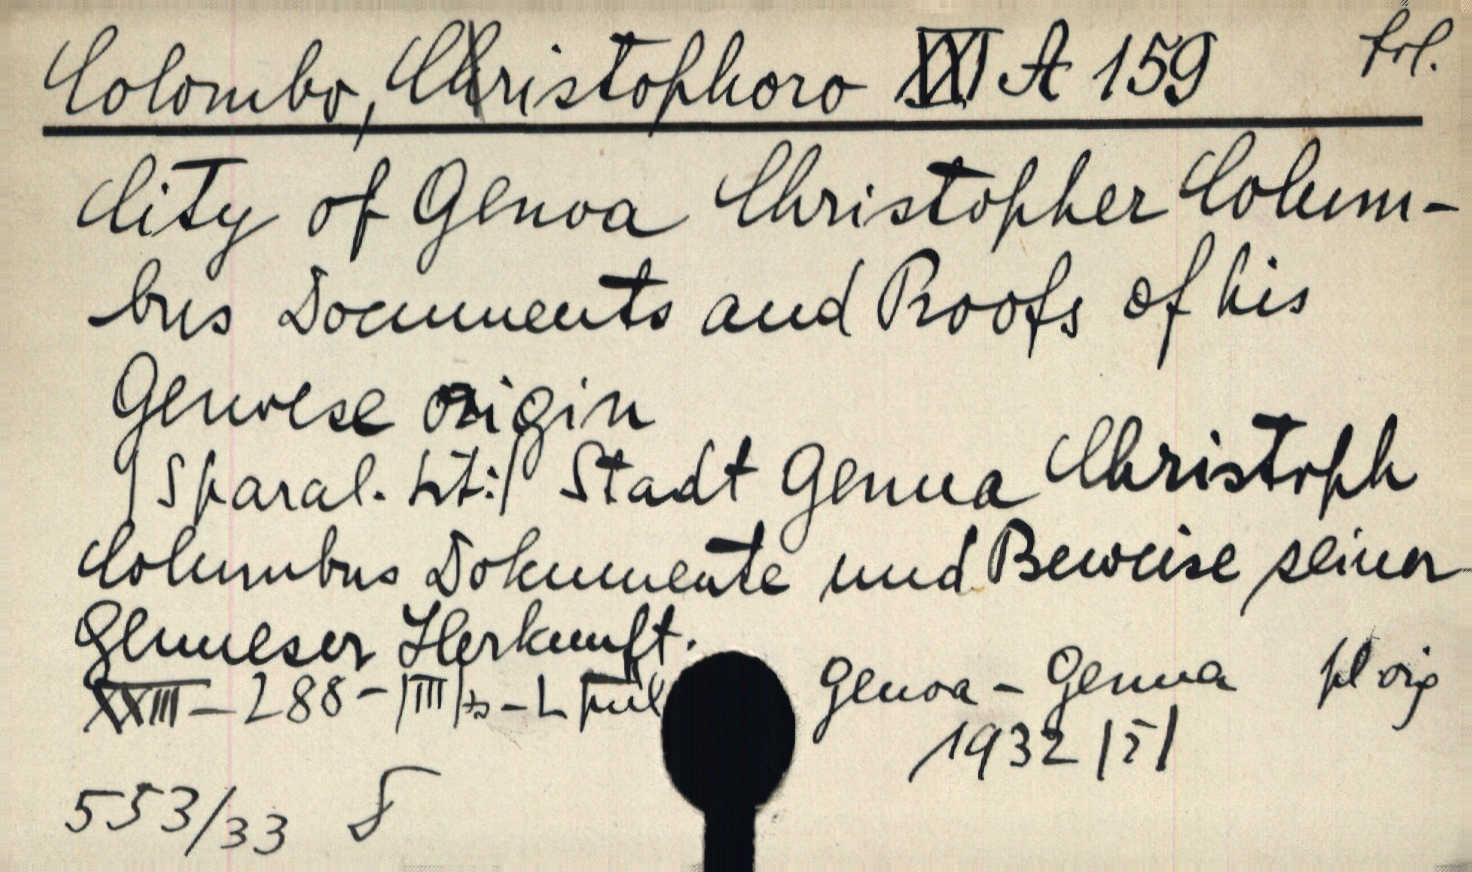 Colombo, Christophoro XXI A 159 fol.
City of Genoa Christopher Colum-
bus Documents and Proofs of his
Genoese origin
/Sparal. tit:/ Stadt Genua Christoph
Columbus Dokumente und Beweise seiner
Genueser Herkunft.
XXIII - 288 - |III| Genoa - Genua
1932 |I|
553/33